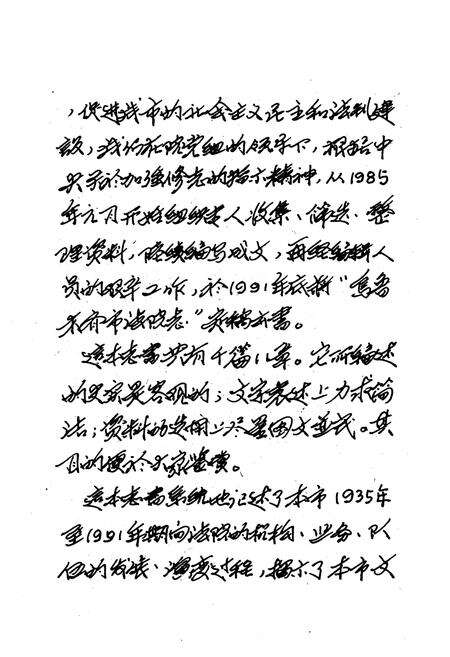 ，促进我市的社会主义民主和法制建
设，我们在院党组的领导下，根据中
央关于加强修志的指示精神，从1985
年六月开始组织专人收集、筛选、整
理资料，陆续编写成文，再经编辑人
员的艰辛工作，於1991年底将“乌鲁
木齐市法院志”定稿成书。
这本志书共有十篇 章。它所编述
的史实是客观的；文字表述上力求简
洁；资料的选用上尽量图文并茂。其
目的便於大家鉴赏。
这本志书系统地记述了本市1935年
至1991年期间法院的机构、业务、队
伍的发展、演变过程，揭示了本市文